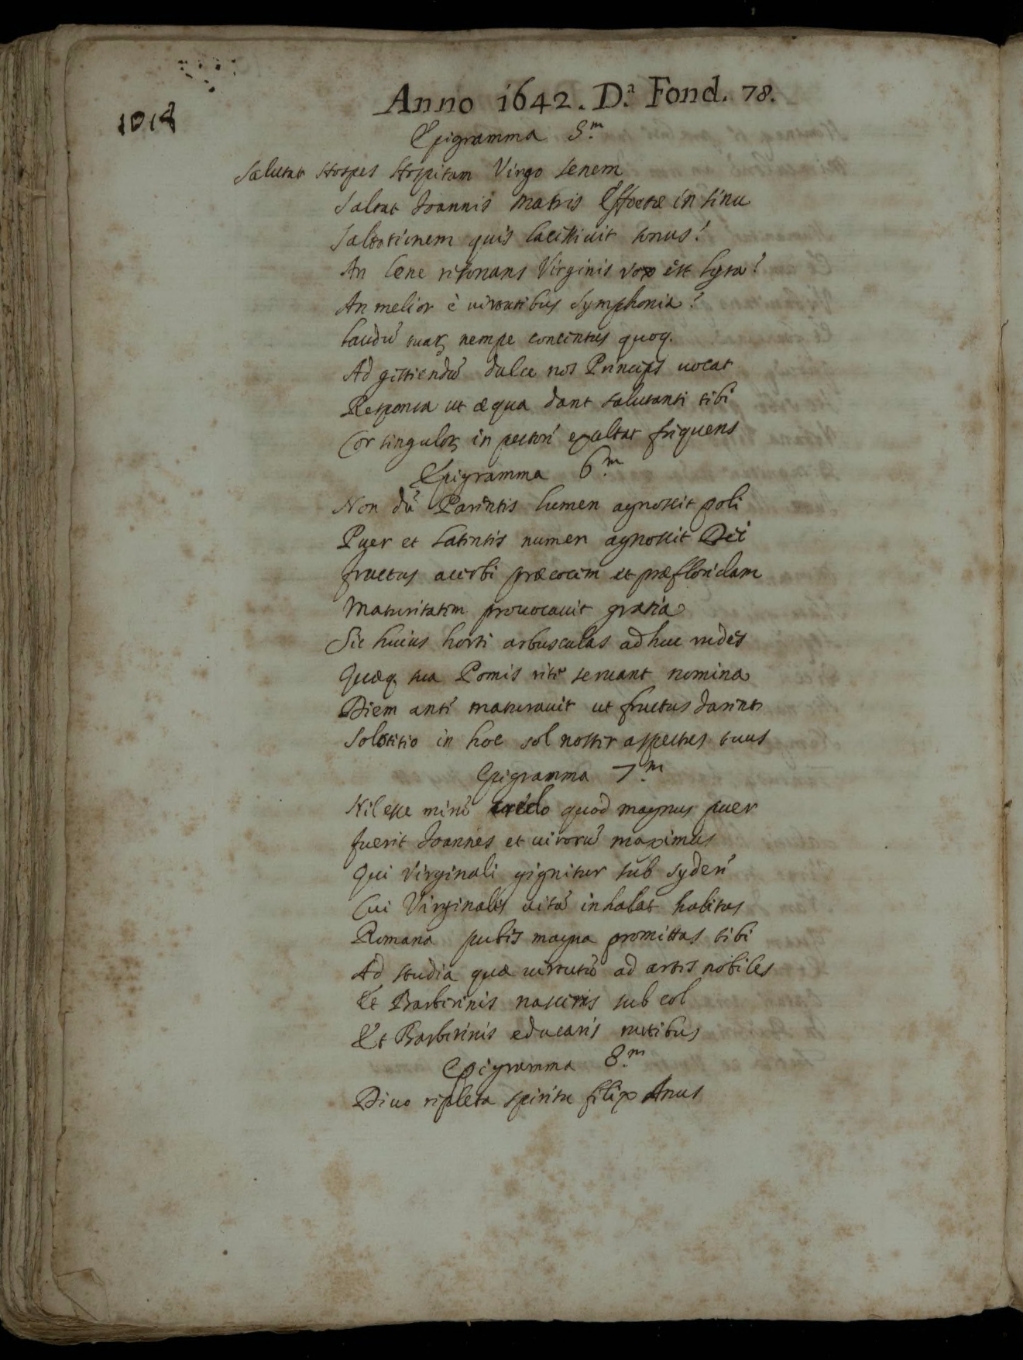 1018
Anno 1642. D.ª Fond. 78.
Epigramma 5.m
Salutat Hospes Hospitam Virgo senem
Saltat Joannis Matris Effoetæ in sinu
Saltationem quis lacessiuit sonus?
An lene resonans Virginis vox est lyra?
An melior è uirtutibus Symphonia?
laudũ tuaꝝ nempe concentus quoq.
Ad gestiendũ dulce nos Princeps uocat
Responsa ut æqua dant salutanti tibi
Cor singuloꝝ in pectore exultat frequens
Epigramma 6.m
Non dũ Parentis lumen agnoscit poli
Puer et Latentis numen agnoscit Dei
fructus acerbi præcocem et præfloridam
Maturitatem prouocauit gratia
Sic huius horti arbusculas adhuc rudes
Quæq sua Pomis rite seruant nomina
Diem ante maturauit ut fructus darent
Solstitio in hoc sol noster aspectus tuus
Epigramma 7.m
Nil esse mirũ credo quod magnus puer
fuerit Joannes et uirorũ maximus
Qui Virginali gignitur sub sydere
Cui Virginalis uitã inhalat halitus
Romana pubes magna promittas tibi
Ad studia quæ uirtutũ ad artes nobiles
Et Barberinis nasceris sub
Et Barberinis educaris nutibus
Epigramma 8.m
Diuo repleta spiritu felix Anus